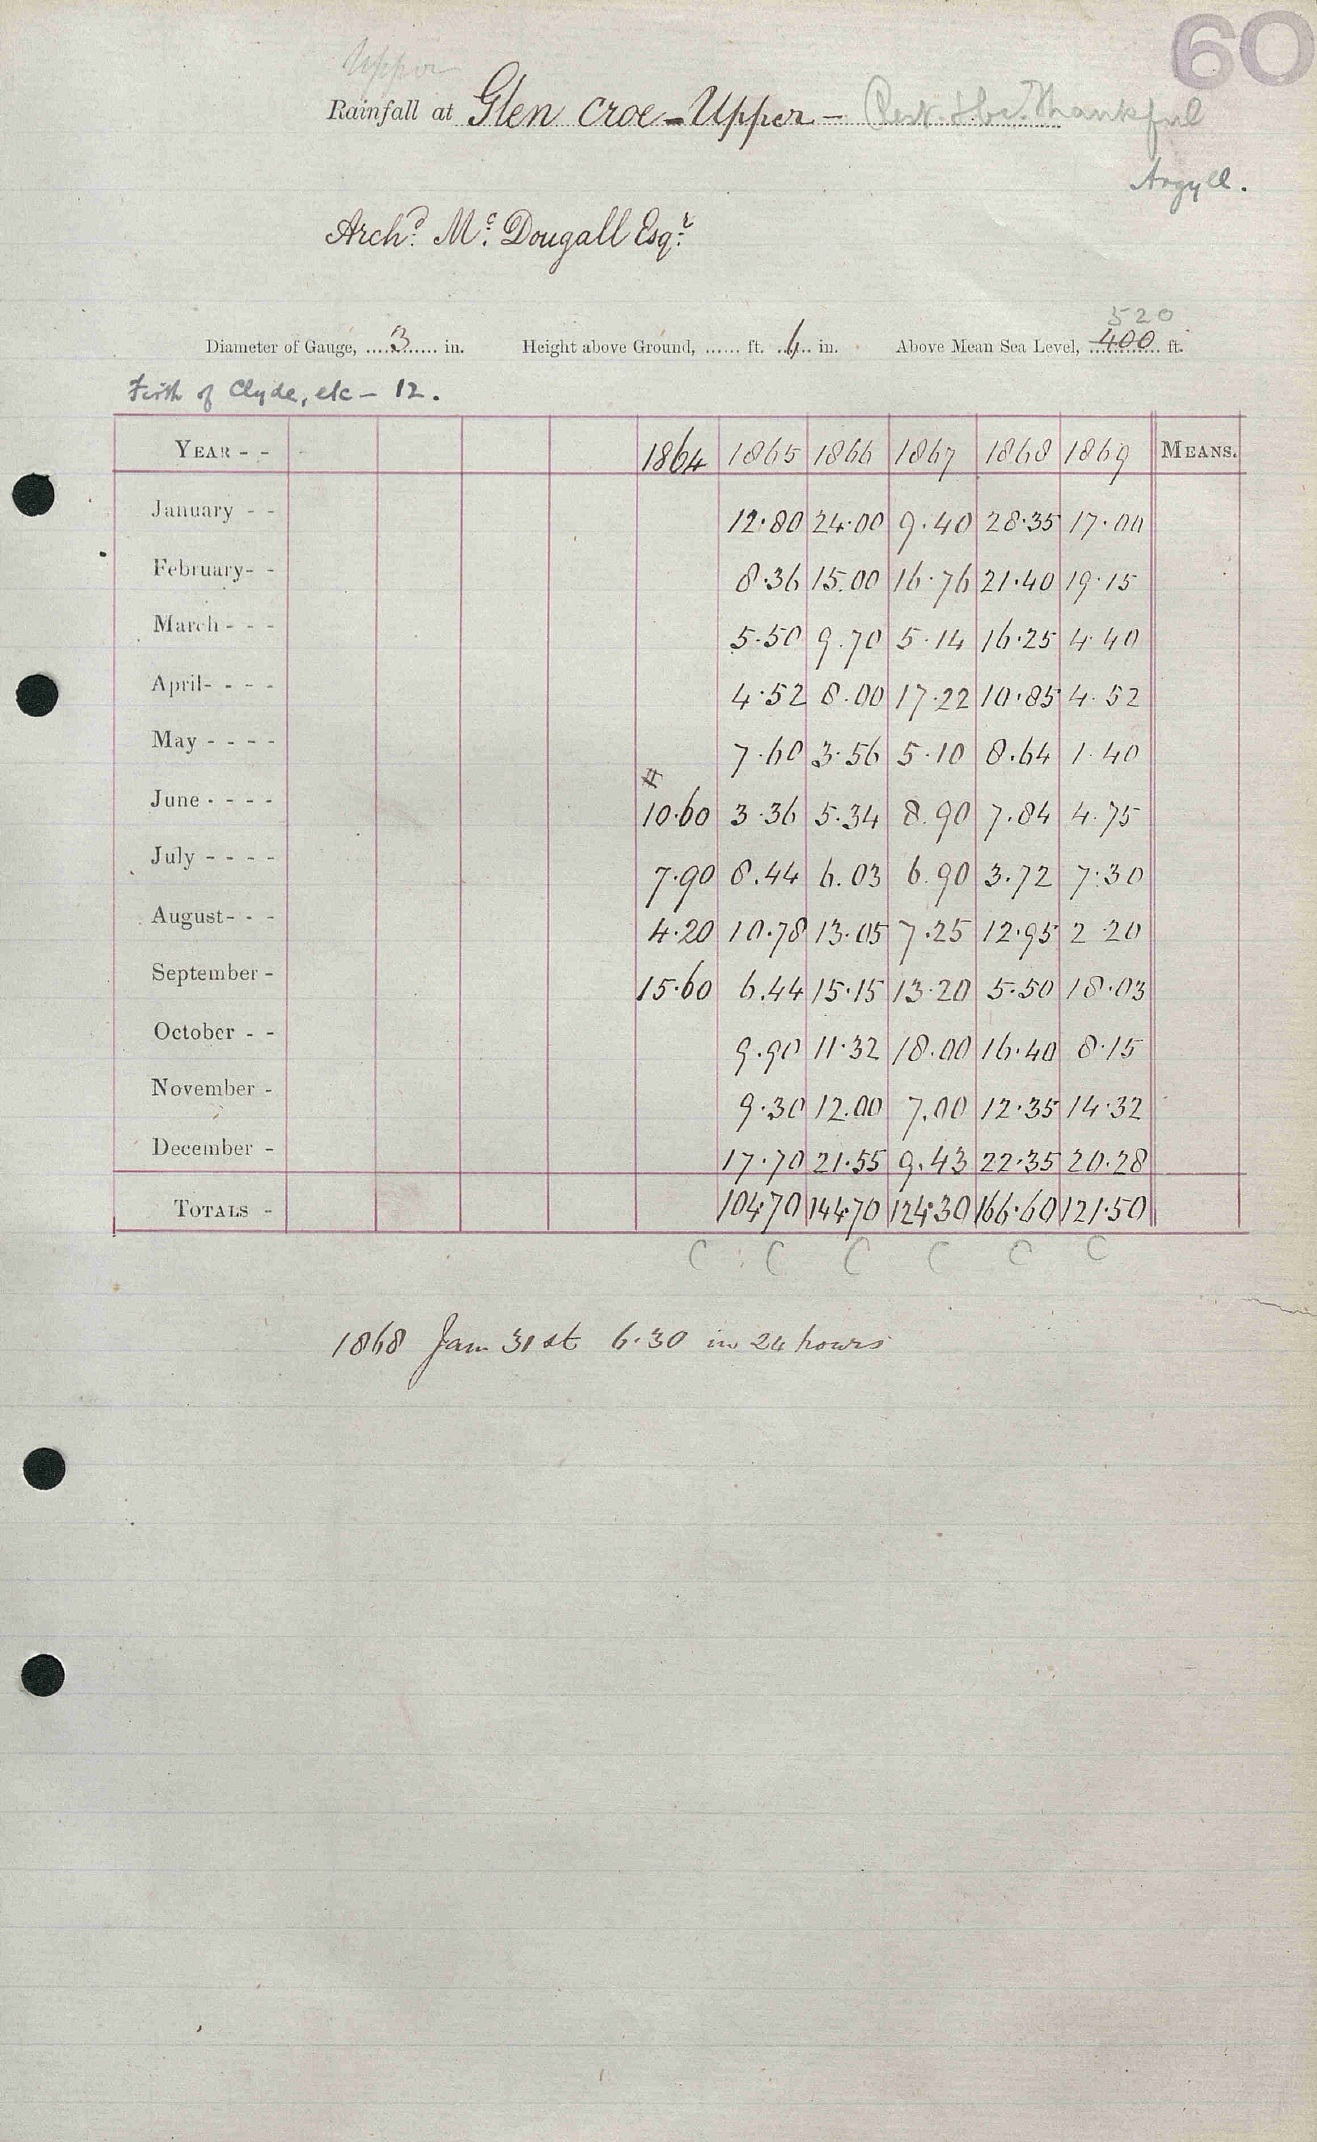 60
Upper
Rainfall at Glen Croe - Upper - Rest & be Thankful
Argyll.
Archd. Mc. Dougall Esqr.
520
Diameter of Gauge, ....3.... in. Height above Ground, ...... ft. 6 in. Above Mean Sea Level, 400 ft.
Firth of Clyde, etc - 12.
YEAR - - 1864 1865 1866 1867 1868 1869 MEANS.
January - - 12.80 24.00 9.40 28.35 17.00
February - - 8.36 15.00 16.76 21.40 19.15
March - - - 5.50 9.70 5.14 16.25 4.40
April - - - - 4.52 8.00 17.22 10.85 4.52
May - - - - 7.60 3.56 5.10 8.64 1.40
June - - - - # 10.60 3.36 5.34 8.90 7.84 4.75
July - - - - 7.90 8.44 6.03 6.90 3.72 7.30
August - - - 4.20 10.78 13.05 7.25 12.95 2.20
September - 15.60 6.44 15.15 13.20 5.50 18.03
October - - 9.90 11.32 18.00 16.40 8.15
November - 9.30 12.00 7.00 12.35 14.32
December - 17.70 21.55 9.43 22.35 20.28
TOTALS - 104.70 144.70 124.30 166.60 121.50
C C C C C C
1868 Jan 31st 6.30 in 24 hours